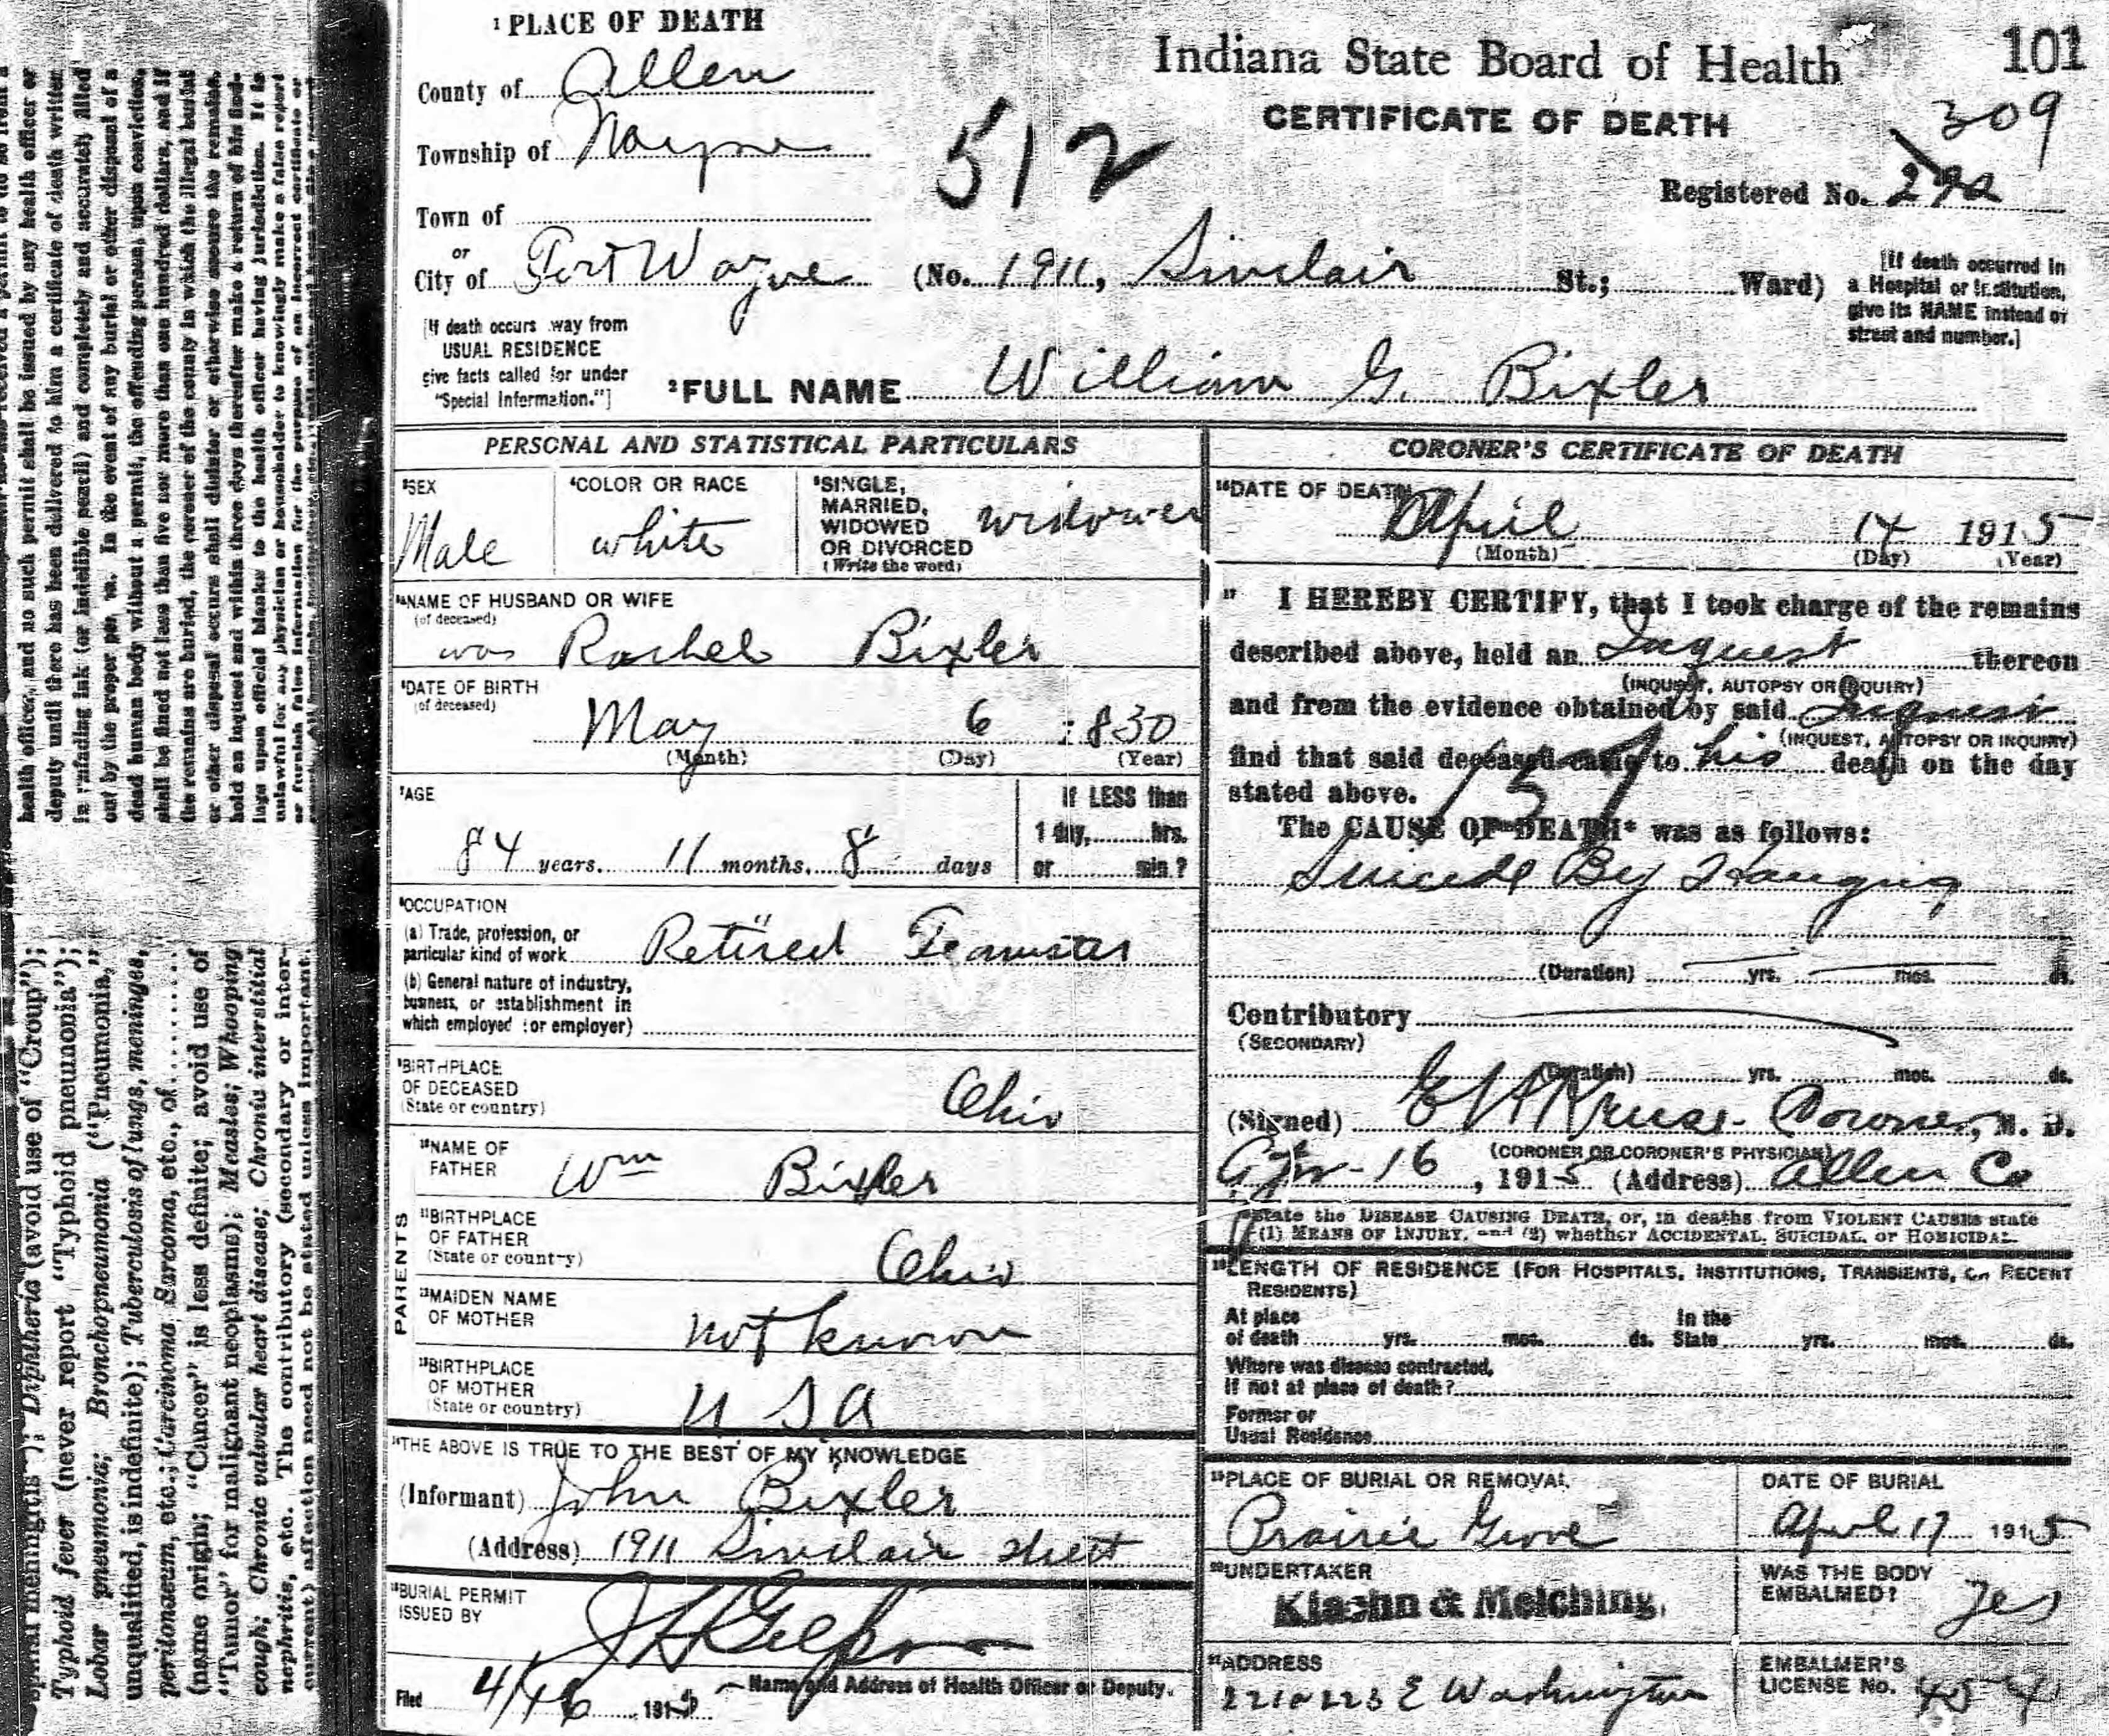 1 PLACE OF DEATH
County of Allen
Township of Wayne
Town of
or
City of Fort Wayne (No. 1911, Sinclair St.; Ward)
[If death occurs way from
USUAL RESIDENCE
give facts called for under
"Special Information."]
Indiana State Board of Health
CERTIFICATE OF DEATH
101
512
309
Registered No. 292
[If death occurred in
a Hospital or Institution,
give its NAME instead of
street and number.]
2 FULL NAME William G. Bixler
PERSONAL AND STATISTICAL PARTICULARS
SEX
Male
COLOR OR RACE
white
SINGLE,
MARRIED,
WIDOWED
OR DIVORCED
(Write the word)
widower
NAME OF HUSBAND OR WIFE
(of deceased)
was Rachel Bixler
DATE OF BIRTH
(of deceased)
May 6 1830
(Month) (Day) (Year)
AGE
84 years. 11 months. 8 days
If LESS than
1 day, hrs.
or min?
OCCUPATION
(a) Trade, profession, or
particular kind of work Retired Teamster
(b) General nature of industry,
business, or establishment in
which employed (or employer)
BIRTHPLACE
OF DECEASED
(State or country)
Ohio
PARENTS
NAME OF
FATHER
Wm Bixler
BIRTHPLACE
OF FATHER
(State or country)
Ohio
MAIDEN NAME
OF MOTHER
not known
BIRTHPLACE
OF MOTHER
(State or country)
U S A
THE ABOVE IS TRUE TO THE BEST OF MY KNOWLEDGE
(Informant) John Bixler
(Address) 1911 Sinclair street
BURIAL PERMIT
ISSUED BY
Name and Address of Health Officer or Deputy.
Filed 4/16 1915
CORONER'S CERTIFICATE OF DEATH
DATE OF DEATH
April 14 1915
(Month) (Day) (Year)
I HEREBY CERTIFY, that I took charge of the remains
described above, held an Inquest thereon
(INQUEST, AUTOPSY OR INQUIRY)
and from the evidence obtained by said Inquest
(INQUEST, AUTOPSY OR INQUIRY)
find that said deceased came to his death on the day
stated above.
The CAUSE OF DEATH* was as follows:
Suicide By Hanging
(Duration) yrs. mos. ds.
Contributory
(SECONDARY)
(Duration) yrs. mos. ds.
(Signed) E H Kruse - Coroner, M. D.
(CORONER OR CORONER'S PHYSICIAN)
Apr - 16, 1915 (Address) Allen Co
State the DISEASE CAUSING DEATH, or, in deaths from VIOLENT CAUSES state
(1) MEANS OF INJURY, and (2) whether ACCIDENTAL, SUICIDAL, or HOMICIDAL.
LENGTH OF RESIDENCE (FOR HOSPITALS, INSTITUTIONS, TRANSIENTS, OR RECENT
RESIDENTS)
At place
of death yrs. mos. ds.
In the
State yrs. mos. ds.
Where was disease contracted,
if not at place of death?
Former or
Usual Residence
PLACE OF BURIAL OR REMOVAL
Prairie Grove
DATE OF BURIAL
April 17 1915
UNDERTAKER
Klaehn & Melching.
WAS THE BODY
EMBALMED?
Yes
ADDRESS
E Washington
EMBALMER'S
LICENSE No.
health officer, and no such permit shall be issued by any health officer or
deputy until there has been delivered to him a certificate of death written
in unfading ink (or indelible pencil) and completely and accurately filled
out by the proper person. In the event of any burial or other disposal of a
dead human body without a permit, the offending person, upon conviction,
shall be fined not less than five nor more than one hundred dollars, and if
the remains are buried, the coroner of the county in which the illegal burial
or other disposal occurs shall disinter or otherwise secure the remains,
hold an inquest and within three days thereafter make a return of his find-
ings upon official blanks to the health officer having jurisdiction. It is
unlawful for any physician or householder to knowingly make a false report
or furnish false information for the purpose of an incorrect certificate or
spinal meningitis"); Diphtheria (avoid use of "Croup");
Typhoid fever (never report "Typhoid pneumonia");
Lobar pneumonia; Bronchopneumonia ("Pneumonia,"
unqualified, is indefinite); Tuberculosis of lungs, meninges,
peritonaeum, etc.; Carcinoma, Sarcoma, etc., of..........
(name origin; "Cancer" is less definite; avoid use of
"Tumor" for malignant neoplasms); Measles; Whooping
cough; Chronic valvular heart disease; Chronic interstitial
nephritis, etc. The contributory (secondary or inter-
current) affection need not be stated unless important.